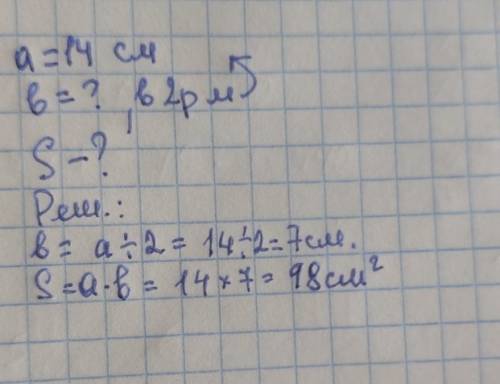 a = 14 см
в = ? , в 2р м
S - ?
Реш.:
в = a ÷ 2 = 14 ÷ 2 = 7 см.
S = a · в = 14 × 7 = 98 см²